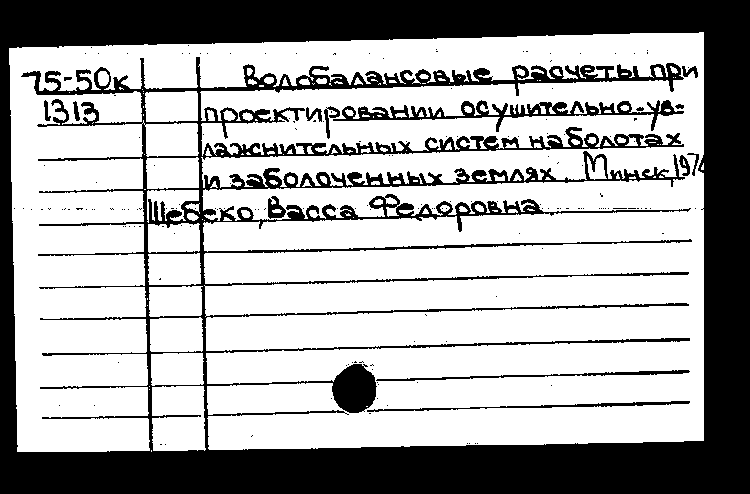 75-50к Водобалансовые расчеты при
1313 проектировании осушительно-ув-
лажнительных систем на болотах
и заболоченных землях. Минск,
Щебеко, Васса Федоровна